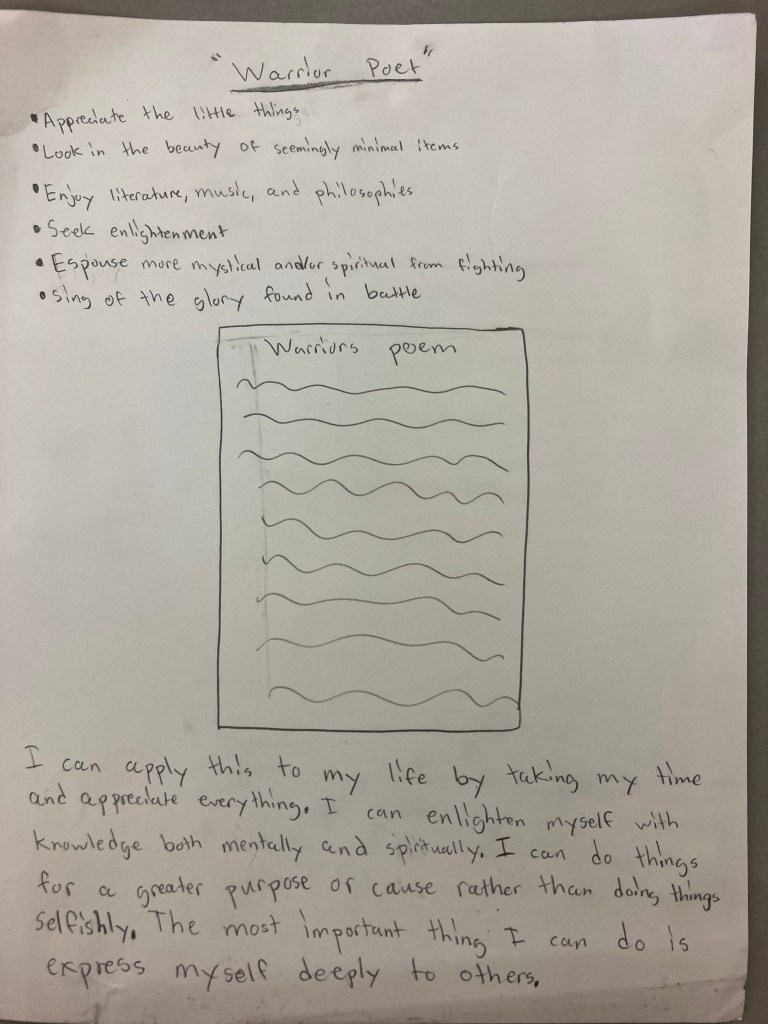 "Warrior Poet"
• Appreciate the little things
• Look in the beauty of seemingly minimal items
• Enjoy literature, music, and philosophies
• Seek enlightenment
• Espouse more mystical and/or spiritual from fighting
• Sing of the glory found in battle
Warriors poem
I can apply this to my life by taking my time
and appreciate everything. I can enlighten myself with
knowledge both mentally and spiritually. I can do things
for a greater purpose or cause rather than doing things
selfishly. The most important thing I can do is
express myself deeply to others.